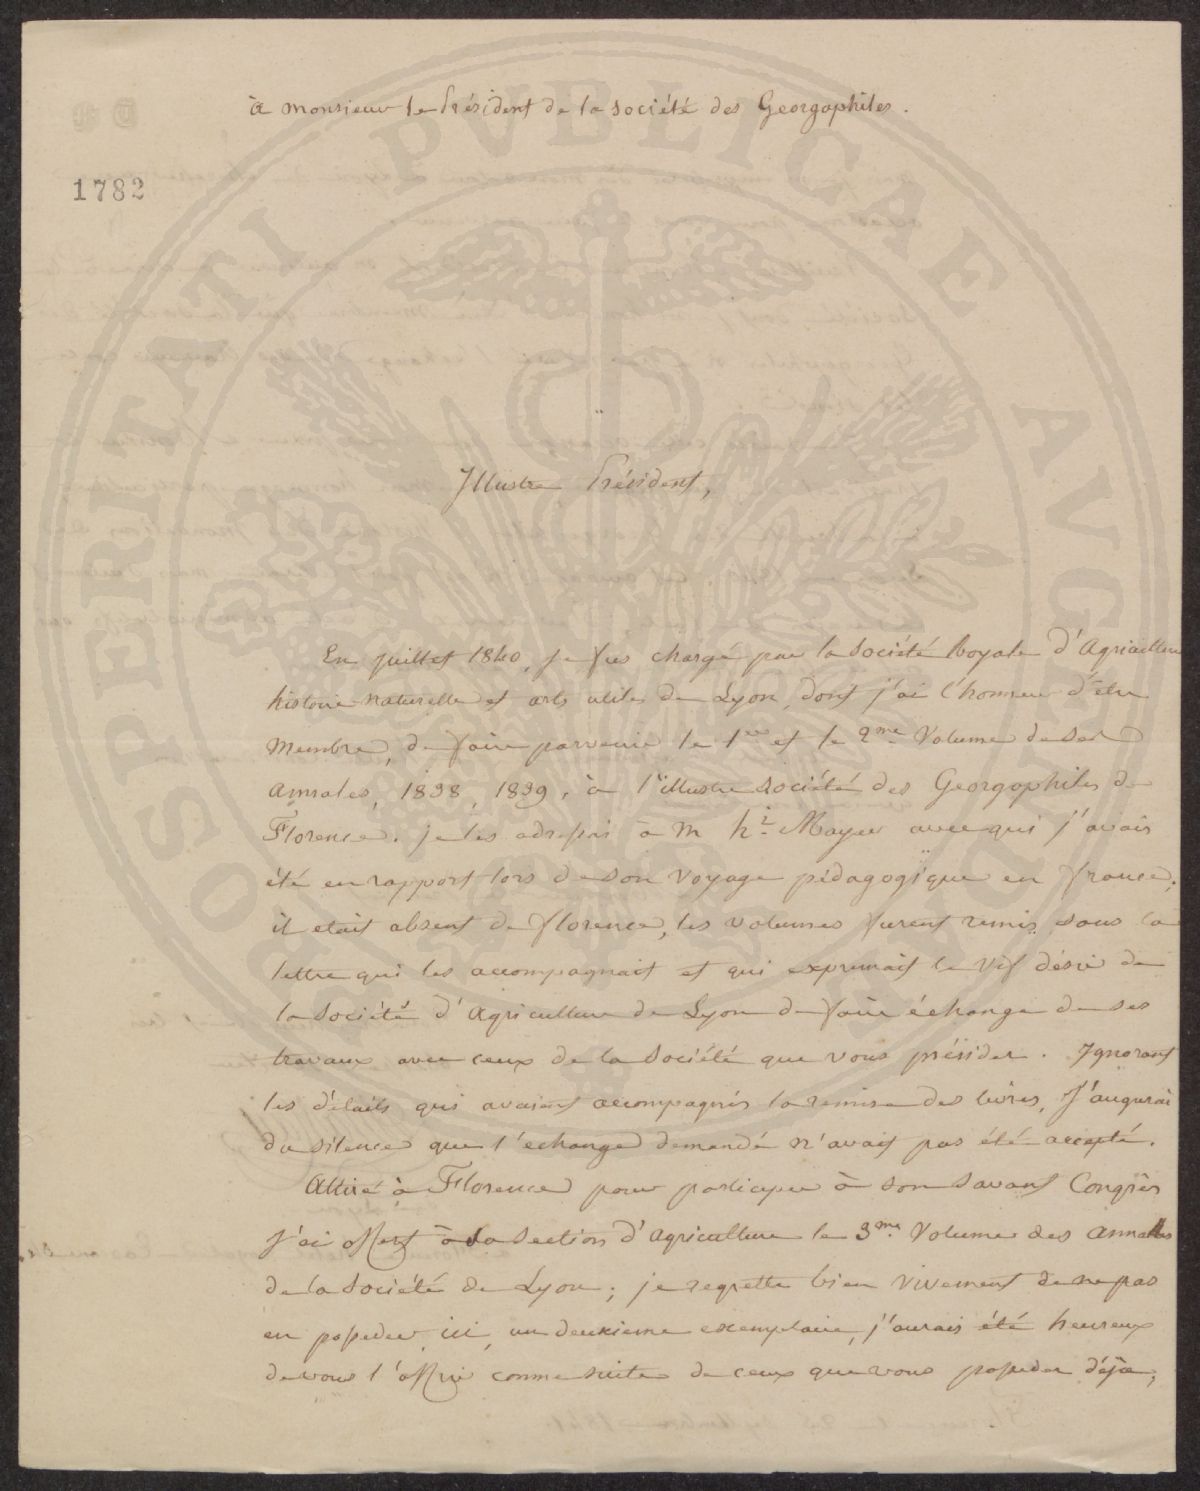 à Monsieur le Président de la société des Georgophiles.
1782
PROSPERITATI PVBLICAE AVGENDAE
Illustre Président,
En juillet 1840, je fus chargé par la Société Royale d'Agriculture
histoire naturelle et arts utiles de Lyon, dont j'ai l'honneur d'être
Membre, de faire parvenir le 1er et le 2me Volume de ses
annales, 1838, 1839, à l'illustre société des Georgophiles de
Florence. je les adressai à M hi. Mayer avec qui j'avais
été en rapport lors de son voyage pédagogique en france;
il etait absent de florence, les volumes furent remis sans la
lettre qui les accompagnait et qui exprimait le vif désir de
la société d'Agriculture de Lyon de faire échange de ses
travaux avec ceux de la Société que vous présidez. Ignorant
les détails qui avaient accompagnés la remise des livres, J'augurai
du silence que l'echange demandé n'avait pas été accepté.
Attiré à Florence pour participer à son savant Congrès
J'ai offert à la section d'agriculture le 3me Volume des annales
de la Société de Lyon; je regrette bien vivement de ne pas
en posseder ici, un deuxieme exemplaire, j'aurais été heureux
de vous l'offrir comme suite de ceux que vous possedez déjà;